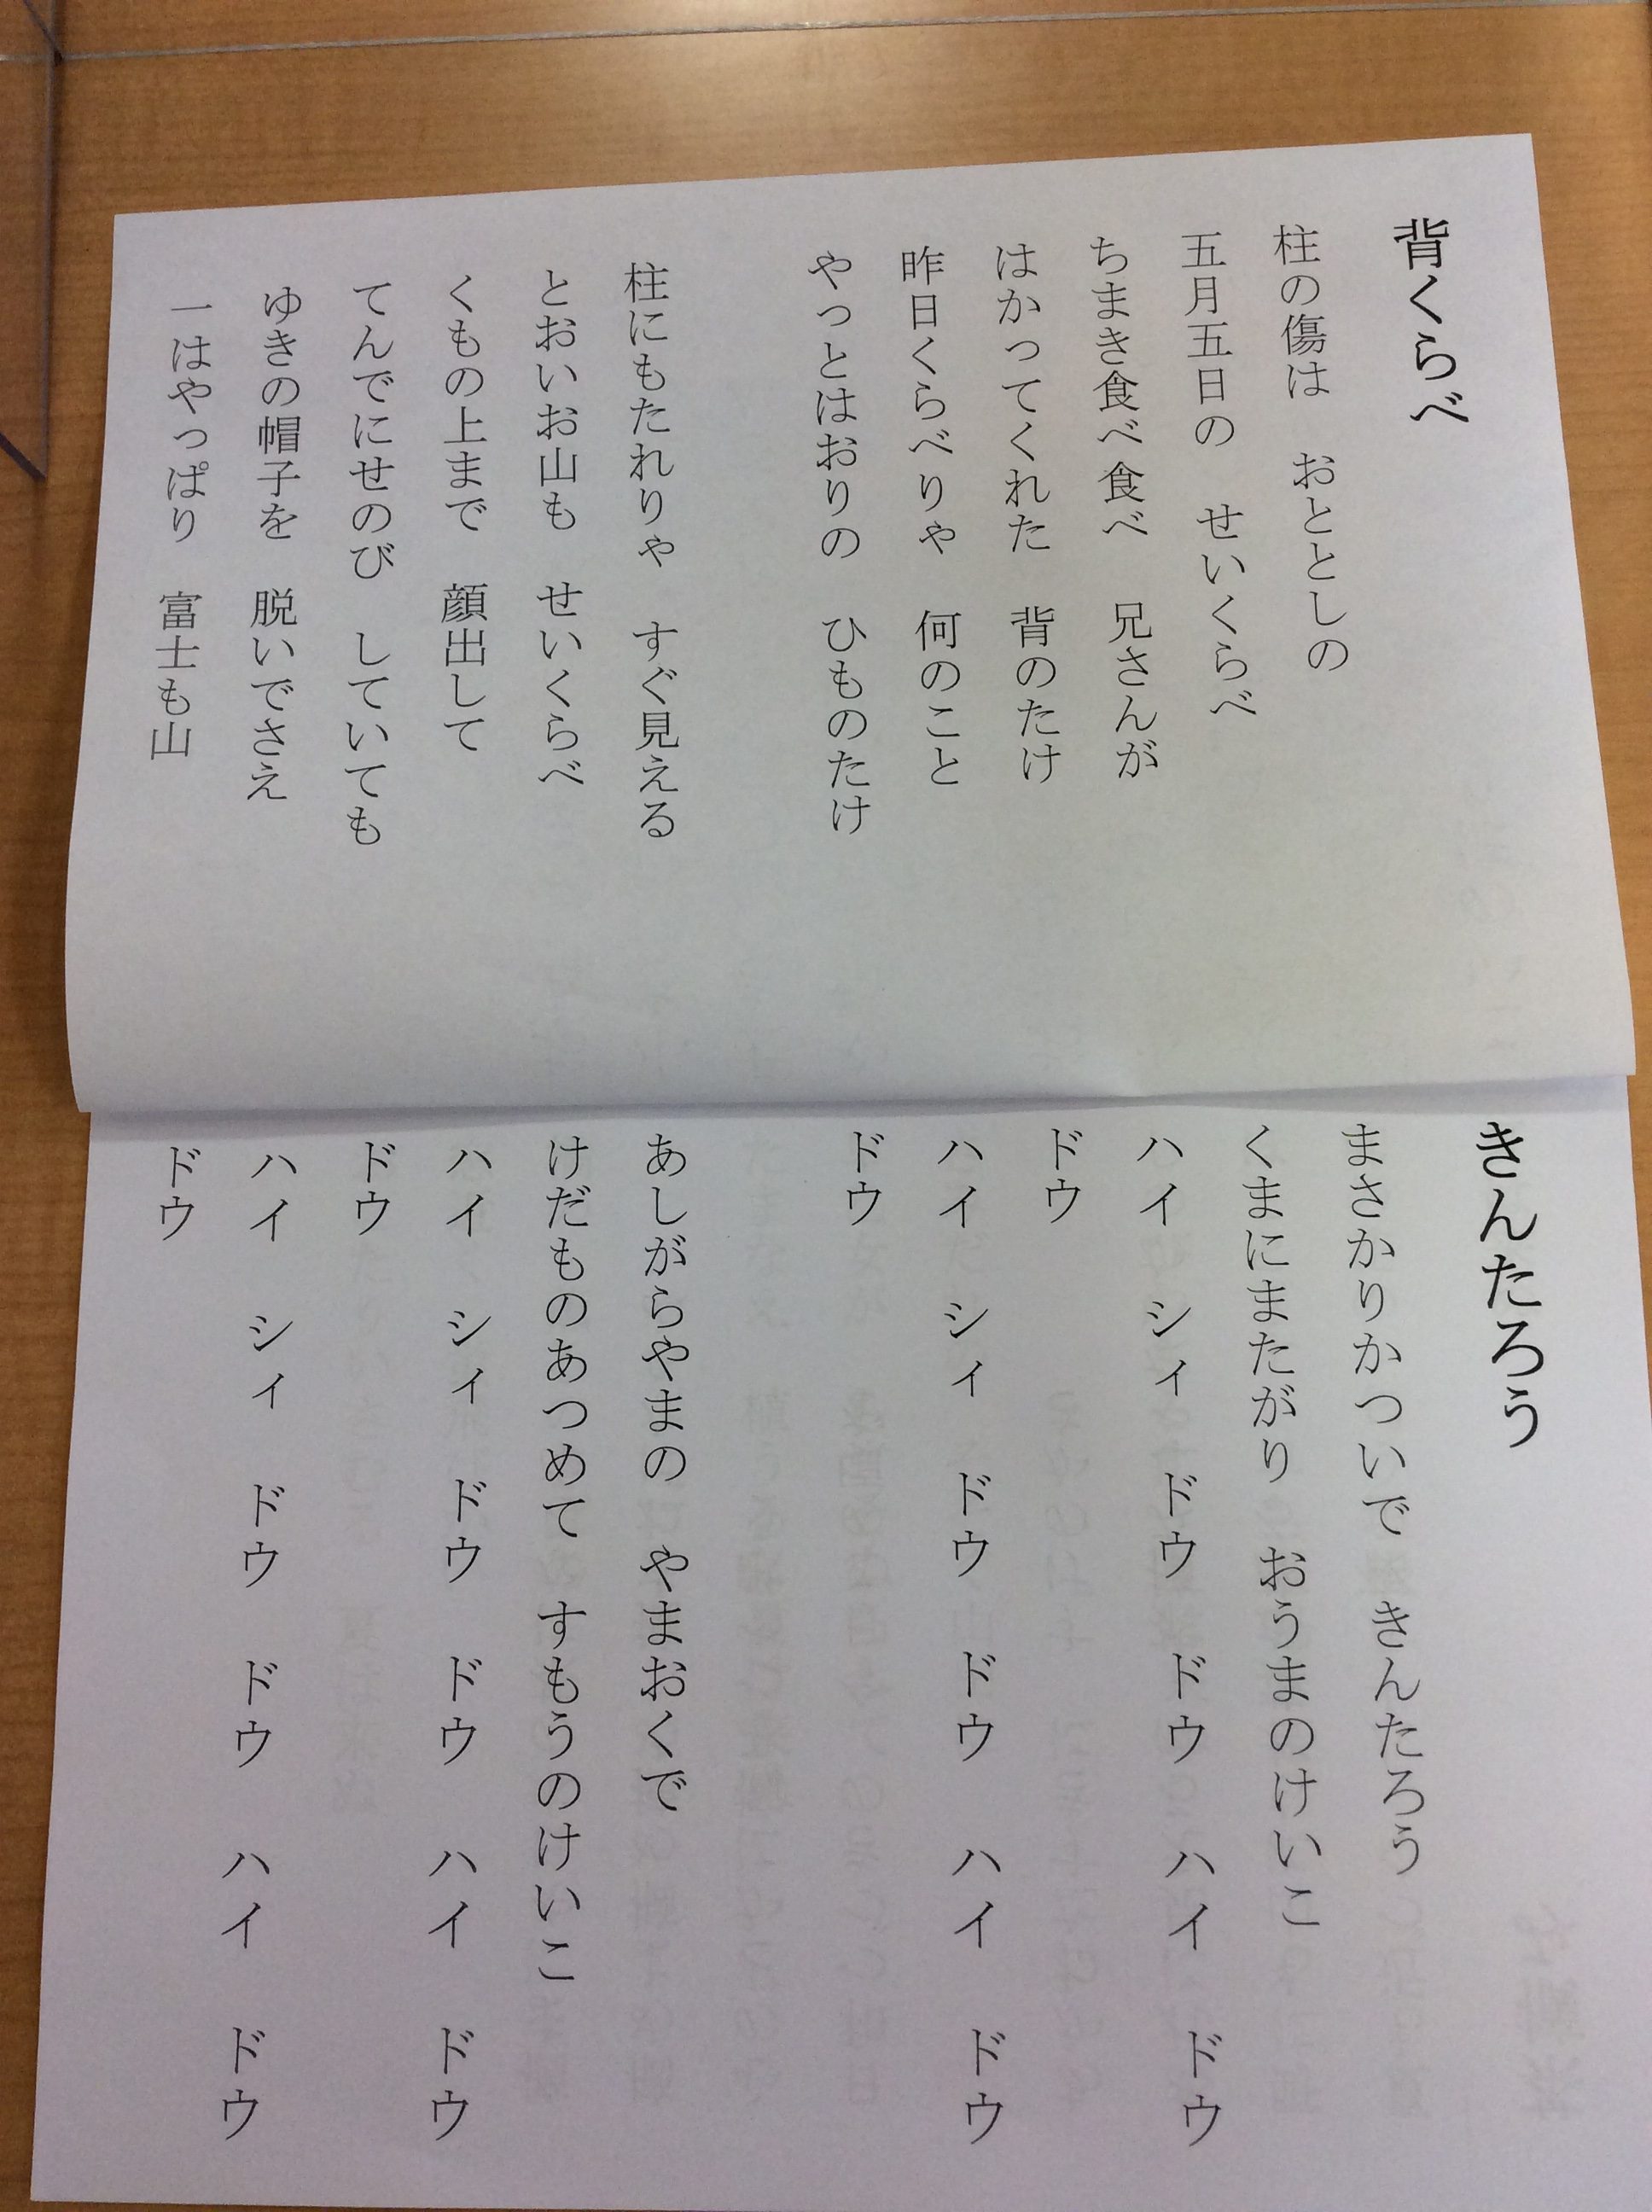 背くらべ
柱の傷は　おととしの
五月五日の　せいくらべ
ちまき食べ食べ　兄さんが
はかってくれた　背のたけ
昨日くらべりゃ　何のこと
やっとはおりの　ひものたけ
柱にもたれりゃ　すぐ見える
とおいお山も　せいくらべ
くもの上まで　顔出して
てんでにせのび　していても
ゆきの帽子を　脱いでさえ
一はやっぱり　富士も山
きんたろう
まさかりかついで　きんたろう
くまにまたがり　おうまのけいこ
ハイ　シィ　ドウ　ドウ　ハイ　ドウ
ドウ
ハイ　シィ　ドウ　ドウ　ハイ　ドウ
ドウ
あしがらやまの　やまおくで
けだものあつめて　すもうのけいこ
ハイ　シィ　ドウ　ドウ　ハイ　ドウ
ドウ
ハイ　シィ　ドウ　ドウ　ハイ　ドウ
ドウ